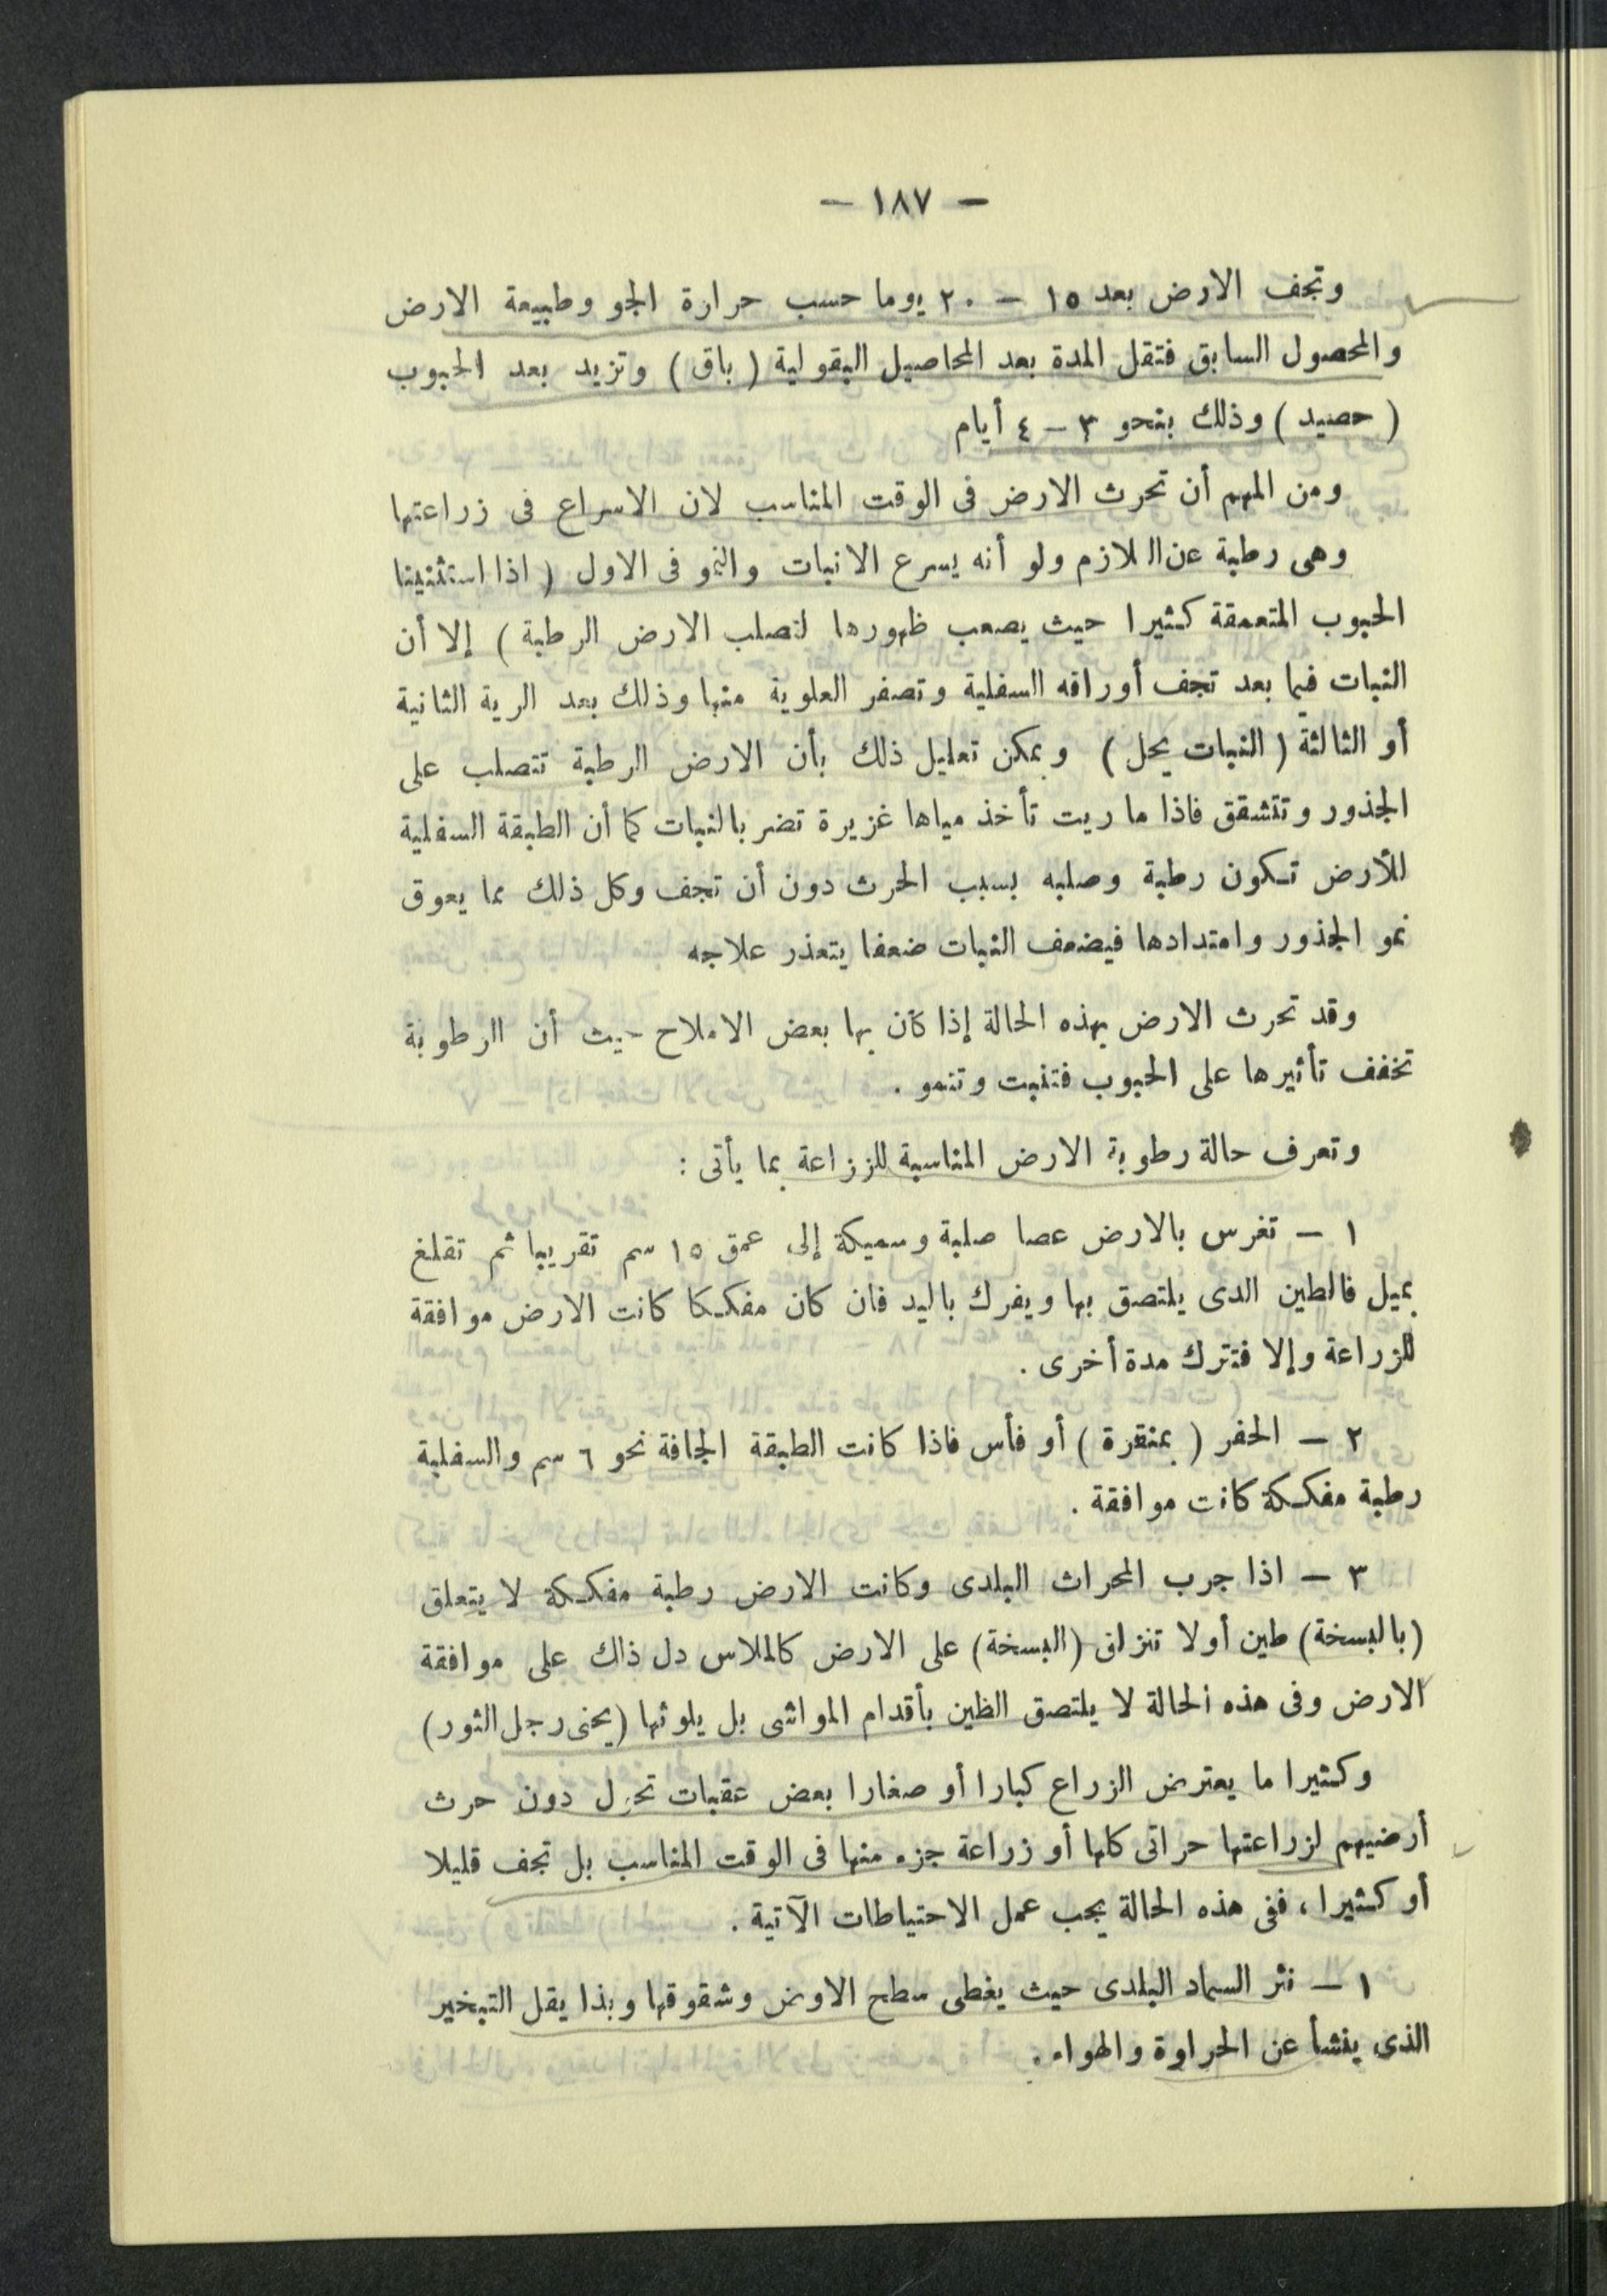 — ١٨٧ —
وتجف الارض بعد ١٥ – ٢٠ يوما حسب حرارة الجو وطبيعة الارض
والمحصول السابق فتقل المدة بعد المحاصيل البقولية ( باق ) وتزيد بعد الحبوب
( حصيد ) وذلك بنحو ٣ – ٤ أيام
ومن المهم أن تحرث الارض فى الوقت المناسب لان الاسراع فى زراعتها
وهى رطبة عن اللازم ولو أنه يسرع الانبات والنمو فى الاول ( اذا استثنينا
الحبوب المتعمقة كثيرا حيث يصعب ظهورها لتصلب الارض الرطبة ) إلا أن
النبات فيما بعد تجف أوراقه السفلية وتصفر العلوية منها وذلك بعد الرية الثانية
أو الثالثة ( النبات يحل ) ويمكن تعليل ذلك بأن الارض الرطبة تتصلب على
الجذور وتتشقق فاذا ما ريت تأخذ مياها غزيرة تضر بالنبات كما أن الطبقة السفلية
للأرض تكون رطبة وصلبه بسبب الحرث دون أن تجف وكل ذلك مما يعوق
نمو الجذور وامتدادها فيضعف النبات ضعفا يتعذر علاجه
وقد تحرث الارض بهذه الحالة إذا كان بها بعض الاملاح حيث أن الرطوبة
تخفف تأثيرها على الحبوب فتنبت وتنمو .
وتعرف حالة رطوبة الارض المناسبة للززاعة بما يأتى :
١ – تغرس بالارض عصا صلبة وسميكة إلى عمق ١٥ سم تقريبا ثم تقلغ
بميل فالطين الدى يلتصق بها ويفرك باليد فان كان مفككا كانت الارض موافقة
للزراعة وإلا فتترك مدة أخرى .
٢ – الحفر ( بمنقرة ) أو فأس فاذا كانت الطبقة الجافة نحو ٦ سم والسفلية
رطبة مفككة كانت موافقة .
٣ – اذا جرب المحراث البلدى وكانت الارض رطبة مفككة لا يتعلق
(بالبسخة) طين أولا تنزلق (البسخة) على الارض كالملاس دل ذاك على موافقة
الارض وفى هذه الحالة لا يلتصق الظين بأقدام المواشى بل يلوثها (يحنى رجل الثور)
وكثيرا ما يعترض الزراع كبارا أو صغارا بعض عقبات تحول دون حرث
أرضيهم لزراعتها حراتى كلها أو زراعة جزء منها فى الوقت المناسب بل تجف قليلا
أو كثيرا ، ففى هذه الحالة يجب عمل الاحتياطات الآتية .
١ – نثر السماد البلدى حيث يغطى سطح الاوض وشقوقها وبذا يقل التبخير
الذى ينشأ عن الحراوة والهواء .